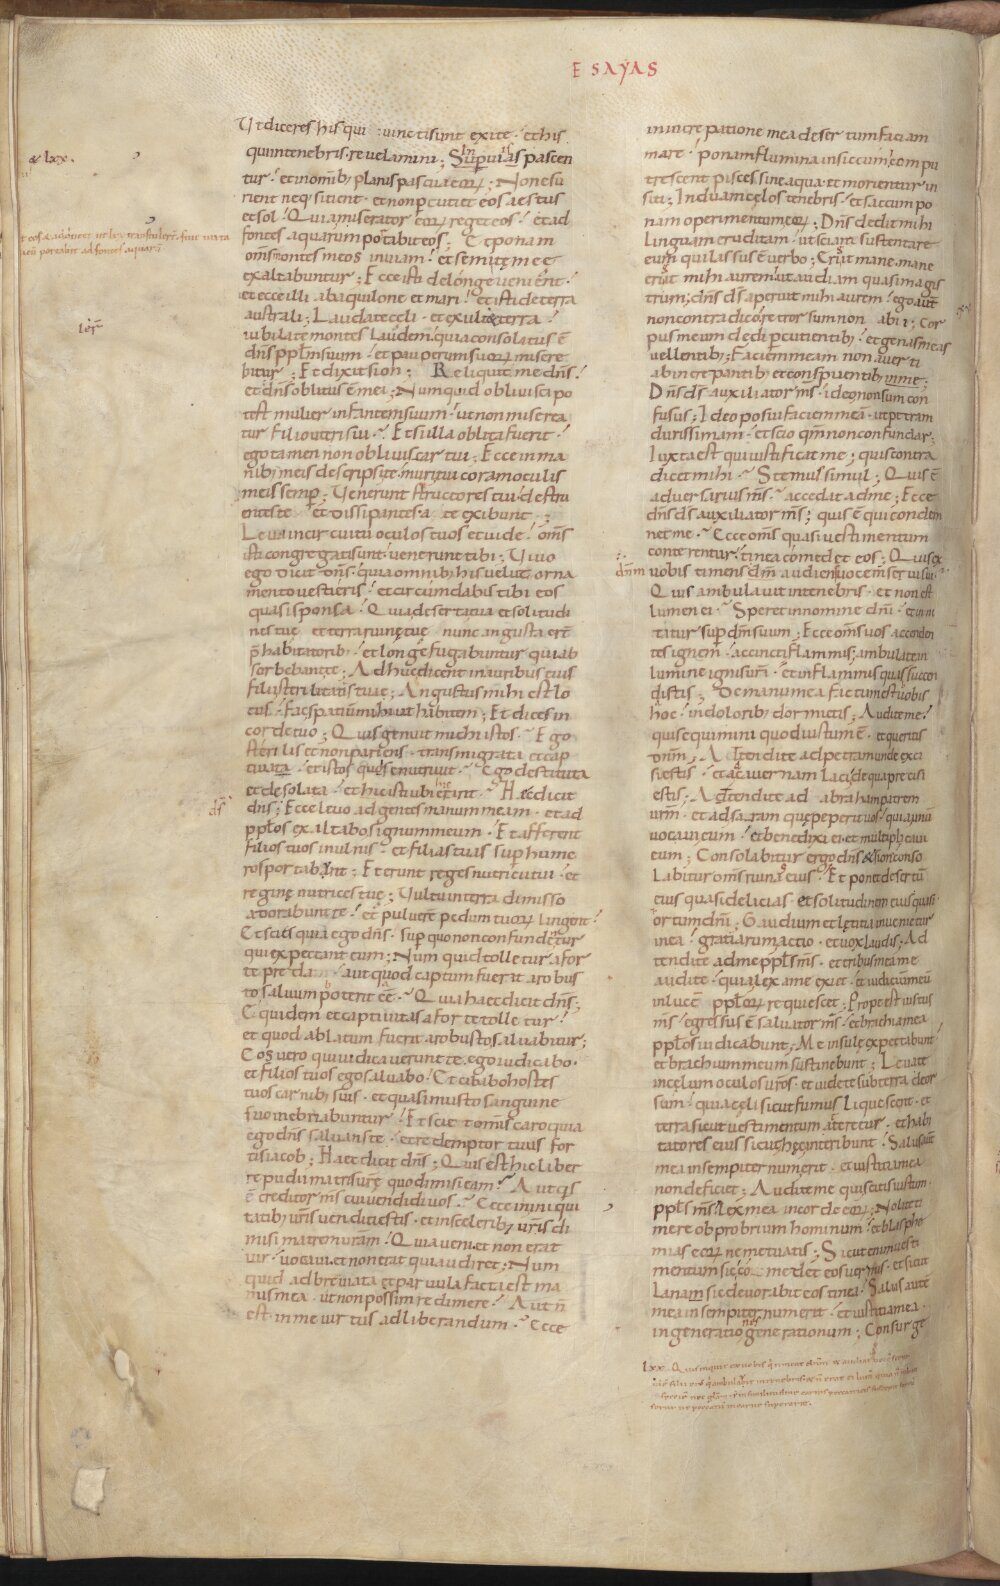 ESAYAS
Ut diceres his qui vincti sunt exite · et his
qui in tenebris · revelamini ; Super vias pascen
tur · et in omnib; planis pascua eorꝝ ; Non esu
rient neq; sitient · et non pcutiet eos aestus
et sol · Quia miserator eorꝝ reget eos · et ad
fontes aquarum portabit eos ; Et ponam
om̅s montes meos in viam · et semitę meę
exaltabuntur ; Ecce isti de longe venient ·
et ecce illi ab aquilone et mari · et isti de terra
australi ; Laudate celi · et exulta terra ·
iubilate montes laudem · quia consolatus ē
dn̅s pplm suum · et pauperum suorꝝ misere
bitur ; Et dixit sion ; Reliquit me dn̅s ·
et dn̅s oblitus ē mei ; Numquid oblivisci po
test mulier infantem suum · ut non miserea
tur filio uteri sui · Et si illa oblita fuerit ·
ego tamen non obliviscar tui ; Ecce in ma
nibus meis descripsi te · muri tui coram oculis
meis semp ; Venerunt structores tui · destru
entes te et dissipantes a te exibunt ;
Leva in circuitu oculos tuos et vide · om̅s
isti congregati sunt · venerunt tibi ; Vivo
ego dicit dn̅s · quia omnib; his velut orna
mento vestieris · et circumdabis tibi eos
quasi sponsa · Quia deserta tua et solitudi
nes tuę et terra ruinę tuę nunc angusta er̅t
p̅ habitatorib; · et longe fugabuntur qui ab
sorbebant te · Adhuc dicent in auribus tuis
filii sterilitatis tuae ; Angustus mihi est lo
cus · fac spatiū mihi ut habitem ; Et dices in
corde tuo ; Quis genuit mihi istos · Ego
sterilis et non pariens · transmigrata et cap
tivata · et istos quis enutrivit · Ego destituta
et desolata · et hi isti ubi erant · Haec dicit
dn̅s ; Ecce levo ad gentes manum meam · et ad
pplos exaltabo signum meum · Et afferent
filios tuos in ulnis · et filias tuas sup hume
ros portabunt ; Et erunt reges nutricii tui · et
reginę nutrices tuę ; Vultu in terra dimisso
adorabunt te · et pulverē pedum tuorꝝ lingent ·
Et scies quia ego dn̅s · sup quo non confundentur
qui expectant eum ; Numquid tolletur a for
te preda · aut quod captum fuerit a robus
to salvum poterit ee̅ · Quia haec dicit dn̅s ;
Equidem et captivitas a forte tolletur ·
et quod ablatum fuerit a robusto salvabitur ;
Eos vero qui iudicaverunt te · ego iudicabo ·
et filios tuos ego salvabo · Et cibabo hostes
tuos carnibus suis · et quasi musto sanguine
suo inebriabuntur · Et sciet omnis caro quia
ego dn̅s salvans te · et redemptor tuus for
tis iacob ; Haec dicit dn̅s ; Quis est hic liber
repudii matris vr̅ę quo dimisi eam · Aut q̅s
ē creditor m̅s cui vendidi vos · Ecce in iniqui
tatib; vr̅is venditi estis · et in sceleribus vr̅is di
misi matrem vr̅am · Quia veni · et non erat
vir · vocavi · et non erat qui audiret ; Num
quid adbreviata et parvula facta est ma
nus mea · ut non possim redimere · Aut n̅
est in me virtus ad liberandum · Ecce
in increpatione mea desertum faciam
mare · ponam flumina in siccum · compu
trescent pisces sine aqua · et morientur in
siti ; Induam cęlos tenebris · et saccum po
nam operimentum eorꝝ ; Dn̅s dedit mihi
linguam eruditam · ut sciam sustentare
eum qui lassus ē verbo ; Erigit mane · mane
erigit mihi aurem · ut audiam quasi magis
trum ; dn̅s ds̅ aperuit mihi aurem · ego aute̅
non contradico · retrorsum non abii ; Cor
pus meum dedi pcutientib; · et genas meas
vellentib; ; Faciem meam non averti
ab increpantib; et conspuentib; in me ;
Dn̅s ds̅ auxiliator m̅s · ideo non sum con
fusus ; Ideo posui faciem meā · ut petram
durissimam · et scio qm̅ non confundar ;
Iuxta est qui iustificat me ; quis contra
dicet mihi · Stemus simul ; Quis ē
adversarius m̅s · accedat ad me ; Ecce
dn̅s ds̅ auxiliator m̅s ; quis ē qui condem
net me · Ecce om̅s quasi vestimentum
conterentur · tinea comedet eos ; Quis ex
vobis timens dm̅ audiens vocem servi sui ·
Quis ambulavit in tenebris · et non est
lumen ei · Speret in nomine dn̅i · et inni
tatur sup dm̅ suum ; Ecce om̅s vos accenden
tes ignem · accincti flammis ; ambulate in
lumine ignis vr̅i · et in flammis quas succen
distis ; De manu mea factum est vobis
hoc · in dolorib; dormietis ; Audite me ·
qui sequimini quod iustum ē · et queritis
dn̅m ; Attendite ad petram unde exci
si estis · et ad cavernam laci de qua precisi
estis ; Attendite ad abraham patrem
vr̅m · et ad saram quę peperit vos · quia unū
vocavi eum · et benedixi ei · et multiplicavi
eum ; Consolabitur ergo dn̅s sion · conso
labitur om̅s ruinas eius · Et ponet desertū
eius quasi delicias · et solitudinem eius quasi
ortum dn̅i ; Gaudium et lętitia invenietur
in ea · gratiarum actio · et vox laudis ; Ad
tendite ad me ppls m̅s · et tribus mea me
audite · quia lex a me exiet · et iudicium meū
in lucē pplorꝝ requiescet ; Prope est iustus
m̅s · egressus ē salvator m̅s · et brachia mea
pplos iudicabunt ; Me insulę expectabunt ·
et brachium meum sustinebunt ; Levate
in cęlum oculos vr̅os · et videte sub terra deor
sum · quia cęli sicut fumus liquescent · et
terra sicut vestimentum atteretur · et habi
tatores eius sicut hęc interibunt · Salus aute̅
mea in sempiternum erit · et iustitia mea
non deficiet ; Audite me qui scitis iustum ·
ppls m̅s · lex mea in corde eorꝝ ; Nolite ti
mere obprobrium hominum · et blasphe
mias eorꝝ ne metuatis ; Sicut enim vesti
mentum sic comedet eos vermis · et sicut
lanam sic devorabit eos tinea · Salus autē
mea in sempiternum erit · et iustitia mea ·
in generationes generationum ; Consurge
& lxx.
dn̅m